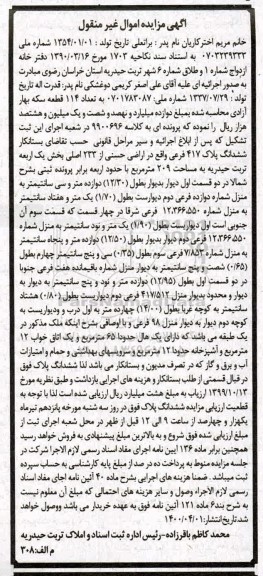 آگهی مزایده اموال غیر منقول
خانم مریم اخترکاریان نام پدر : براتعلی تاریخ تولد : ۱۳۵۴/۰۱/۰۱ شماره ملی
۰۷۰۳۲۳۹۳۲۲ به استناد سند نکاحیه ۱۷۰۳ مورخ ۱۳۹۰/۰۳/۱۶ دفتر خانه
ازدواج شماره ۱ و طلاق شماره ۶ شهر تربت حیدریه استان خراسان رضوی مبادرت
به صدور اجرائیه ای علیه آقای علی اصغر کریمی دوغشکی نام پدر: قدرت اله تاریخ
تولد : ۱۳۳۷/۰۷/۲۹ شماره ملی: ۰۷۰۱۷۸۳۰۸۷ به تعداد ۱۱۴ قطعه سکه بهار
آزادی محاسبه شده بمبلغ دوازده میلیارد و نهصد و شصت و یک میلیون و هشتصد
هزار ریال را نموده که پرونده ای به کلاسه ۹۹۰۰۶۹۶ در شعبه اجرای این ثبت
تشکیل که پس از ابلاغ اجرائیه و سیر مراحل قانونی حسب تقاضای بستانکار
ششدانگ پلاک ۴۱۷ فرعی واقع در اراضی حسنی از ۲۳۳ اصلی بخش یک اربعه
تربت حیدریه به مساحت ۲۰۹ مترمربع با حدود اربعه برابر پرونده ثبتی بشرح
شمالا در دو قسمت اول دیوار بدیوار بطول (۱۲/۳۰) دوازده متر و سی سانتیمتر به
شماره دوازده فرعی دوم دیواریست بطول (۱/۷۰) یک متر و هفتاد سانتیمتر
به منزل شماره ۱۲،۳۶۶،۵۵۰ فرعی شرقا در چهار قسمت که قسمت سوم آن
جنوبی است اول دیواریست بطول (۱/۹۰) یک متر و نود سانتیمتر به منزل شماره
۱۲،۳۶۶،۵۵۰ فرعی دوم دیوار بدیوار بطول (۱۲/۵۰) دوازده متر و پنجاه سانتیمتر
به منزل شماره ۷/۸۵۲ فرعی سوم بطول (۰/۳۵) سی و پنج سانتیمتر چهارم بطول
(۰/۶۵) شصت و پنج سانتیمتر به دیوار منزل شماره باقیمانده هفت فرعی جنوبا
در دو قسمت اول بطول (۱۲/۹۵) دوازده متر و نود و پنج سانتیمتر به دیوار
دیوار و محدود بدیوار منزل ۴۱۷۵۱۲ فرعی دوم دیواریست بطول (۰/۸۰) هشتاد
سانتیمتر به کوچه غربا بطول (۱۴/۰۰) چهارده متر به اول درب و دیواریست به
کوچه دوم دیوار به دیوار منزل ۹۸ فرعی و با اوصافی بشرح اینکه ملک مذکور در
یک طبقه می باشد که دارای یک هال حدودا ۶۵ مترمربع و یک اتاق خواب ۱۲
مترمربع و آشپزخانه حدودا ۱۲ مترمربع و سرویسهای بهداشتی و حمام و امتیازات
آب و برق و گاز که در تصرف مدیون و بستانکار می باشد لذا ششدانگ پلاک فوق
در قبال قسمتی از طلب بستانکار و هزینه های اجرایی بازداشت و طبق نظریه مورخ
۱۳۹۹/۱۰/۱۳ ارزیاب به مبلغ هشت میلیارد ریال ارزیابی شده است لذا با توجه به
قطعیت ارزیابی مزایده ششدانگ پلاک فوق در روز سه شنبه مورخه پانزدهم تیرماه
یکهزار و چهارصد از ساعت ۹ الی ۱۲ قبل از ظهر در محل شعبه اجرای ثبت از
مبلغ ارزیابی شده فوق شروع و به بالاترین مبلغ پیشنهادی به فروش خواهد رسید
همچنین برابر ماده ۱۳۶ آیین نامه اجرای مفاد اسناد رسمی لازم الاجرا شرکت در
جلسه مزایده منوط به پرداخت ده در صد از مبلغ پایه کارشناسی به حساب سپرده
ثبت میباشد . ضمنا هزینه های اجرایی بشرح ماده ۴۰ آئین نامه اجای مفاد اسناد
رسمی لازم الاجراء وصول و سایر هزینه های احتمالی که مبلغ آن معلوم نیست
به شرح بند۶ ماده ۱۲۱ آئین نامه فوق به عهده خریدار می باشد ووصول خواهد
شد تاریخ انتشار: ۱۴۰۰/۰۴/۰۱
محمد کاظم باقرزاده-رئیس اداره ثبت اسناد و املاک تربت حیدریه
م الف:۳۰۸